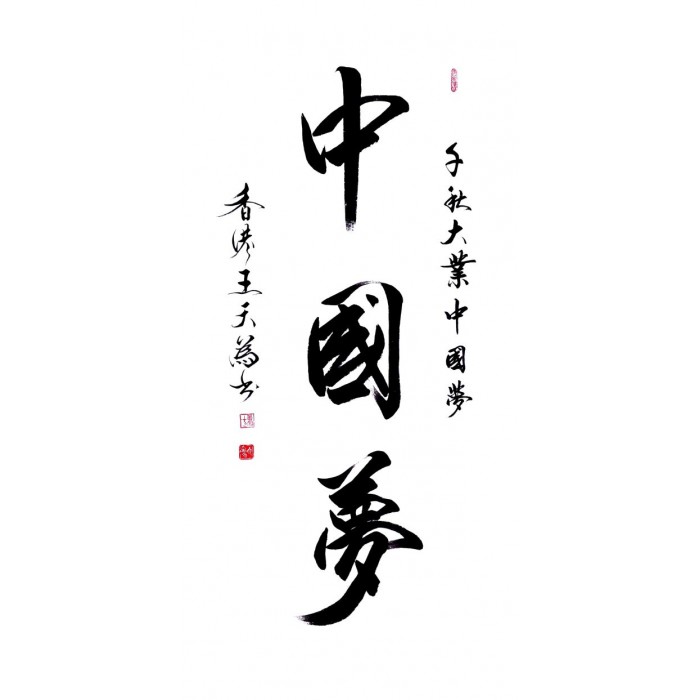 千秋大業中國夢
中國夢
香港王天為书